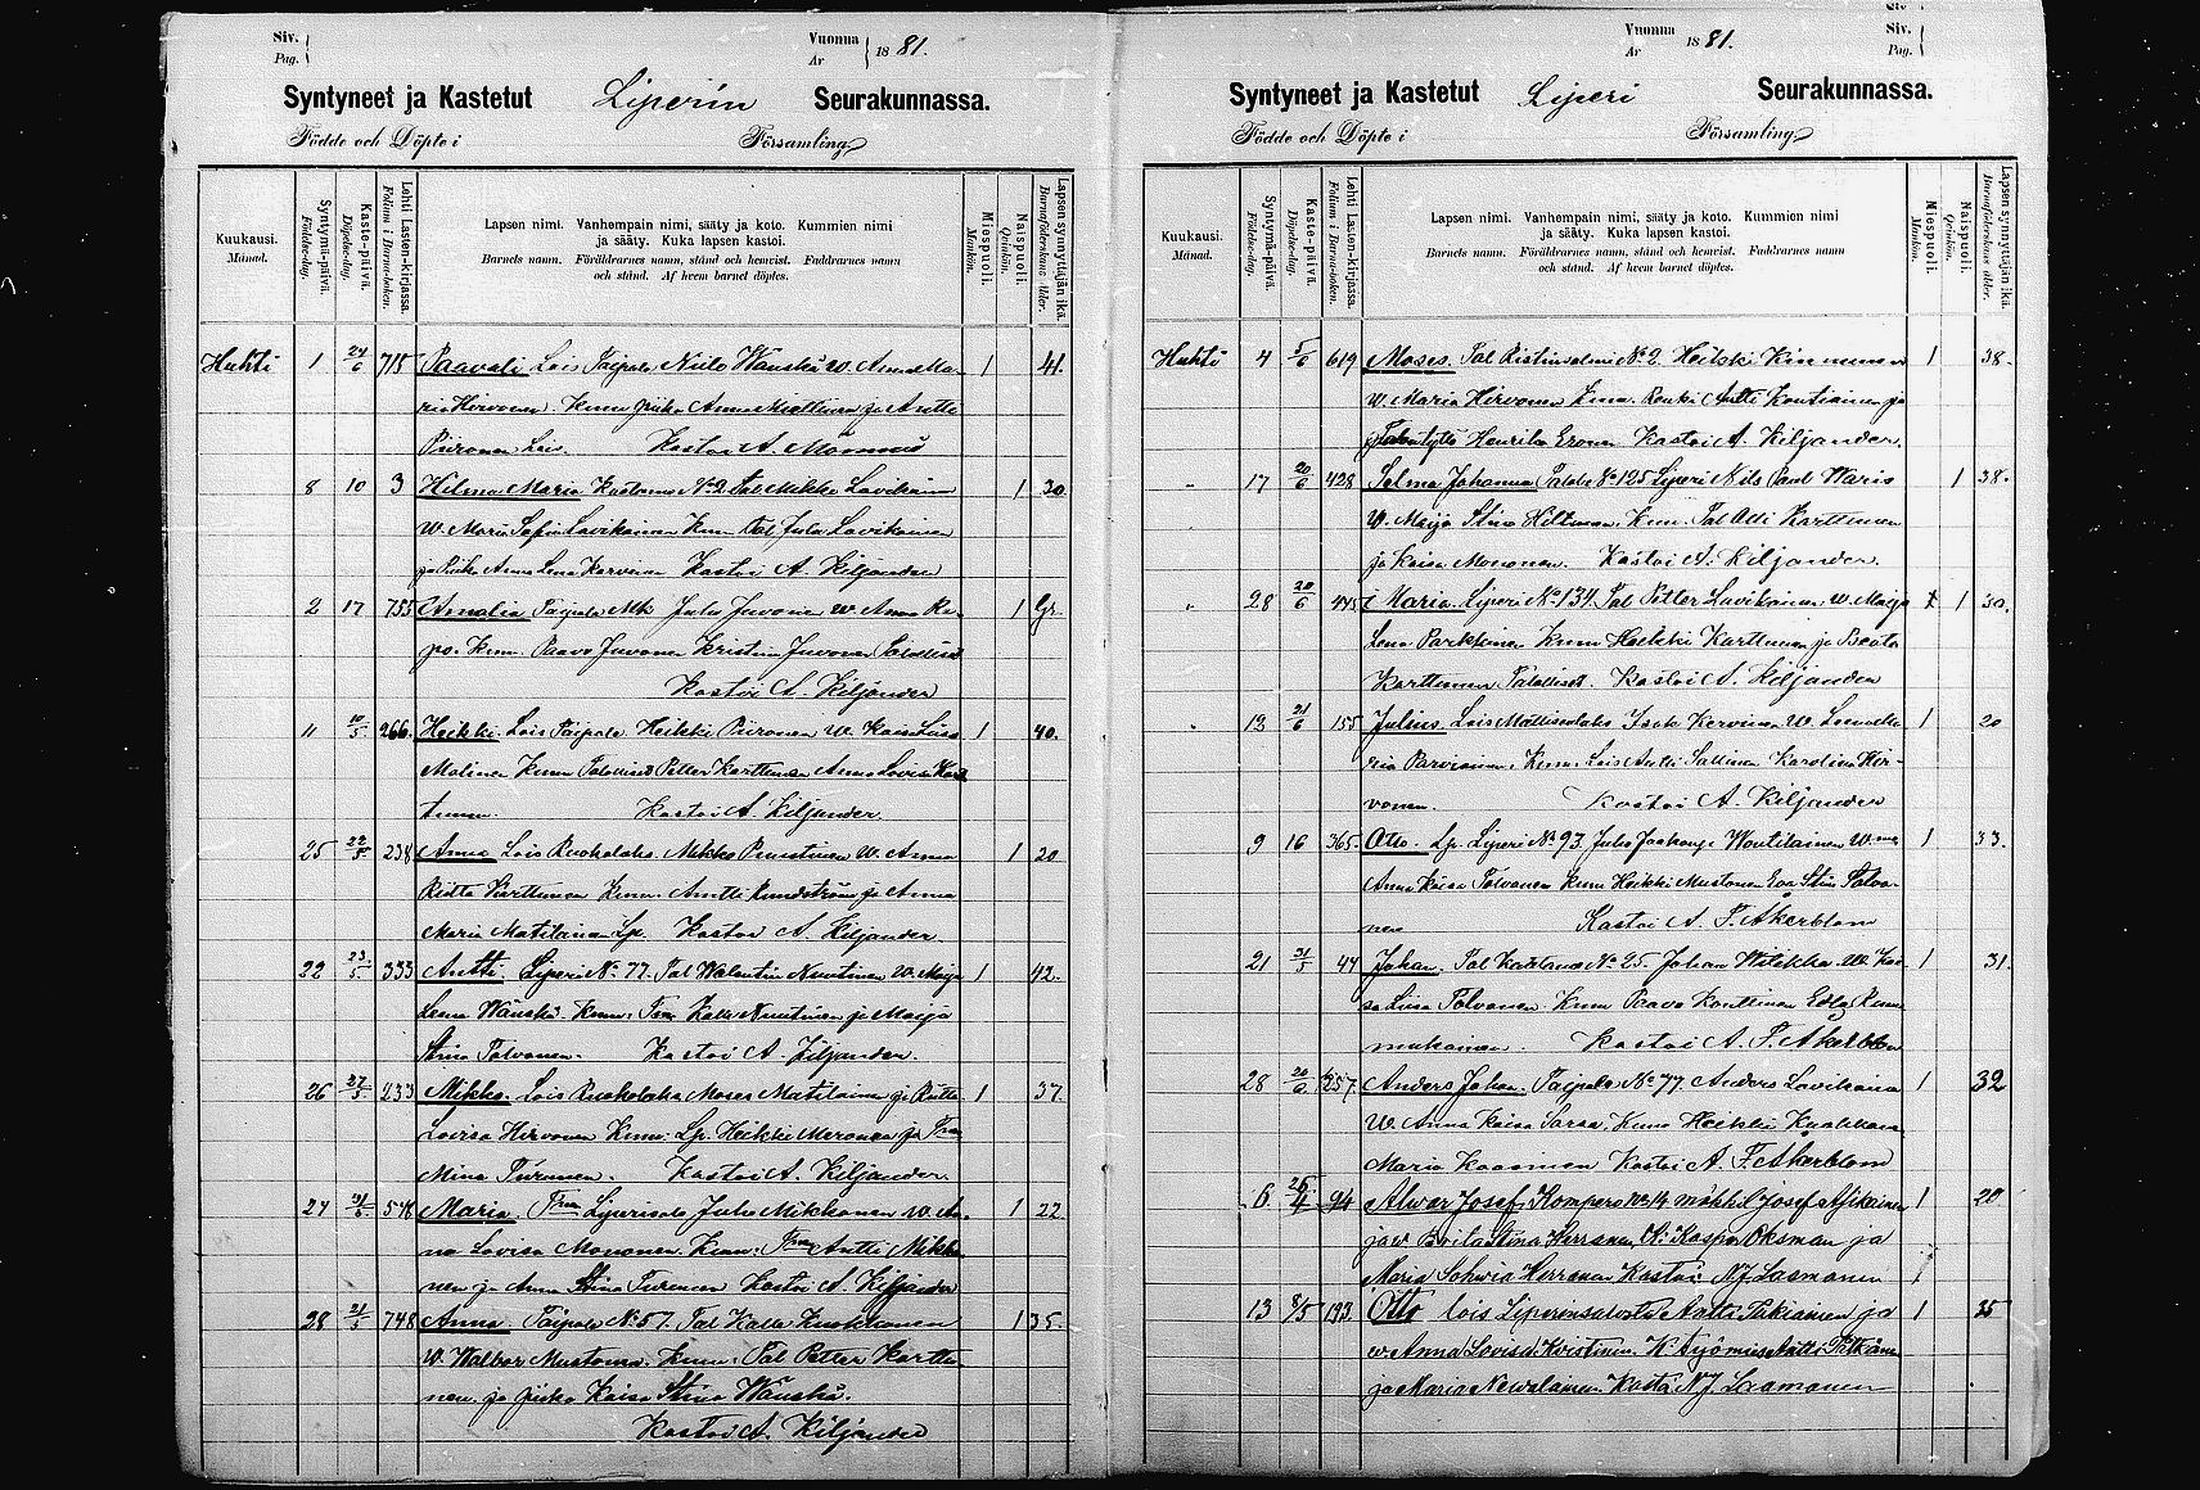 Siv.
Pag.
Vuonna
År
1881.
Syntyneet ja Kastetut Liperin Seurakunnassa.
Födde och Döpte i Församling
Kuukausi.
Månad.
Syntymä-päivä.
Födelse-dag.
Kaste-päivä.
Döpelse-dag.
Lehti Lasten-kirjassa.
Folium i Barna-boken.
Lapsen nimi. Vanhempain nimi, sääty ja koto. Kummien nimi
ja sääty. Kuka lapsen kastoi.
Barnets namn. Föräldrarnes namn, stånd och hemvist. Faddrarnes namn
och stånd. Af hvem barnet döptes.
Miespuoli.
Mankön.
Naispuoli.
Qvinkön.
Lapsen synnyttäjän ikä.
Barnaföderskans ålder.
Huhti 1 24/6 715 Paavali Lois Taipale Niilo Wänskä w. Anna Ma- 1 41.
ria Hirvonen. Kum piika Anna Miettinen ja Antti
Piironen Lois. Kastoi A. Mömmö
8 10 3 Hilma Maria No 2 Tal Mikko Lavikainen 1 30
W. Maria Sofia Lavikainen Kum Tal Juho Lavikainen
ja Piika Anna Lena Karvinen Kastoi A. Kiljander
2 17 755 Amalia Taipale Mk Juho Juvonen w. Anna Re- 1 Gr.
po. Kum. Paavo Juvonen Kristina Juvonen Talolliset
Kastoi A. Kiljander
11 10/5 266. Heikki. Lois Taipale Heikki Piironen W. Kaisa Liisa 1 40.
Malinen Kum Talolliset Petter Karttunen Anna Lovisa Kart
tunen. Kastoi A. Kiljander.
25 22/5 238 Anna Lois Ruokolaks. Mikko Puustinen W. Anna 1 20
Riitta Karttunen Kum. Antti Rundström ja Anna
Maria Matilainen Lp. Kastoi A. Kiljander.
22 23/5 333 Antti. Liperi No 77. Tal Walentin Nuutinen W. Maija 1 42.
Leena Wänskä. Kum: Kalle Nuutinen ja Maija
Stina Tolvanen. Kastoi A. Kiljander.
26 27/5 233 Mikko. Lois Ruokolaks Moses Matilainen ja Riitta 1 37.
Lovisa Hirvonen Kum: Lp. Heikki Meronen ja
Mina Turunen. Kastoi A. Kiljander.
27 548 Maria. Liperisalo Juho Mikkonen w. An- 1 22.
na Lovisa Mononen. Kum: Antti Mikko
nen ja Anna Stina Turunen Kastoi A. Kiljander
28 21/5 748 Anna. Taipale No 57. Tal Kalle Kuokkanen 1 35.
W. Walbor Mustonen. Kum: Tal Petter Karttu
nen. ja piika Kaisa Stina Wänskä.
Kastoi A. Kiljander
Siv.
Pag.
Vuonna
År
1881.
Syntyneet ja Kastetut Liperi Seurakunnassa.
Födde och Döpte i Församling
Kuukausi.
Månad.
Syntymä-päivä.
Födelse-dag.
Kaste-päivä.
Döpelse-dag.
Lehti Lasten-kirjassa.
Folium i Barna-boken.
Lapsen nimi. Vanhempain nimi, sääty ja koto. Kummien nimi
ja sääty. Kuka lapsen kastoi.
Barnets namn. Föräldrarnes namn, stånd och hemvist. Faddrarnes namn
och stånd. Af hvem barnet döptes.
Miespuoli.
Mankön.
Naispuoli.
Qvinkön.
Lapsen synnyttäjän ikä.
Barnaföderskans ålder.
Huhti 4 5/6 619 Moses. Tal Ristinsalmi No 2. Heikki Kinnunen 1 38.
W. Maria Hirvonen Kum. Renki Antti Kontiainen ja
Henrika Eronen Kastoi A. Kiljander.
" 17 20/6 428 Selma Johanna No 125 Liperi Nils Paul Waris 1 38.
W. Maija Stina Hiltunen. Kum. Tal Olli Karttunen
ja Kaisa Mononen. Kastoi A. Kiljander.
" 28 20/6 445 Maria. Liperi No 134. Tal Petter Lavikainen w. Maija 1 30.
Lena Parkkinen Kum Heikki Karttunen ja Beata
Karttunen Talolliset. Kastoi A. Kiljander
" 13 21/6 155 Julius. Lois Mattisenlaks Isak Kervinen W. Leena Ma 1 20
ria Parviainen. Kum. Lois Antti Sallinen Karolina Hir-
vonen. Kastoi A. Kiljander
9 16 365. Otto. Lp. Liperi No 93. Juho Woutilainen W. 1 33.
Anna Kaisa Tolvanen Kum Heikki Mustonen Eva Stina Tolva-
nen Kastoi A. F. Åkerblom
21 31/5 44 Johan. Tal No 25. Johan Wilikka. W. Kai 1 31.
sa Liisa Tolvanen. Kum Paavo Konttinen Edla
mukainen. Kastoi A. F. Åkerblom
28 20/6 257. Anders Johan. Taipale No 77. Anders Lavikainen 1 32
W. Anna Kaisa Sarsa. Kum Heikki Kuokkanen
Maria Kaasinen Kastoi A. F. Åkerblom
6. 25/4 94 Alwar Josef. Kompero No 14 mökkil Josef 1 20
ja w Brita Stina Herranen. Kaspar Oksman ja
Maria Sohwia Herranen Kastoi N J Laamanen
13 8/5 193. Otto lois Liperinsalosta Antti Pitkänen ja 1 35
w Anna Lovisa Kvistinen. K. Työmies Antti Pitkänen
ja Maria Newalainen Kasta N J Laamanen